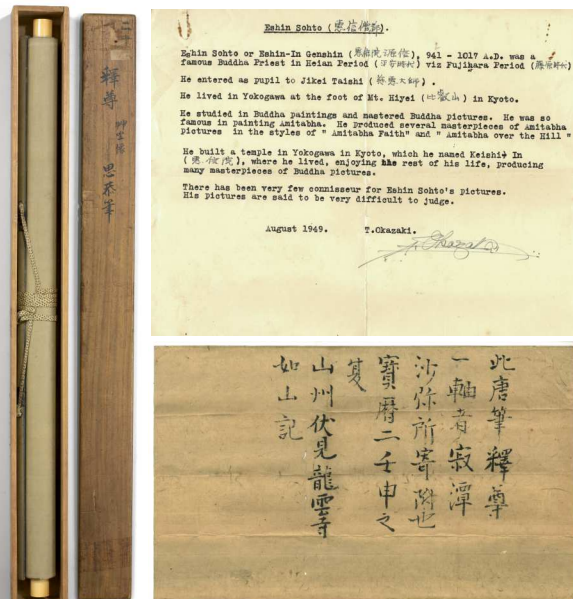 釋尊
思恭筆
Eshin Sohto (恵信僧都).
Eshin Sohto or Eshin-In Genshin (恵信院源信), 941 - 1017 A.D. was a
famous Buddha Priest in Heian Period (平安時代) viz Fujihara Period (藤原時代)
He entered as pupil to Jikei Taishi (慈恵大師).
He lived in Yokogawa at the foot of Mt. Hiyei (比叡山) in Kyoto.
He studied in Buddha paintings and mastered Buddha pictures. He was so
famous in painting Amitabha. He produced several masterpieces of Amitabha
pictures in the styles of " Amitabha Faith" and " Amitabha over the Hill "
He built a temple in Yokogawa in Kyoto, which he named Keishit In
(恵信院), where he lived, enjoying the rest of his life, producing
many masterpieces of Buddha pictures.
There has been very few connisseur for Eshin Sohto's pictures.
His pictures are said to be very difficult to judge.
August 1949. T.Okazaki.
T. Okazaki
此唐筆釋尊
一軸者寂潭
沙弥所寄附也
寶曆二壬申之
夏
山州伏見龍雲寺
如山記